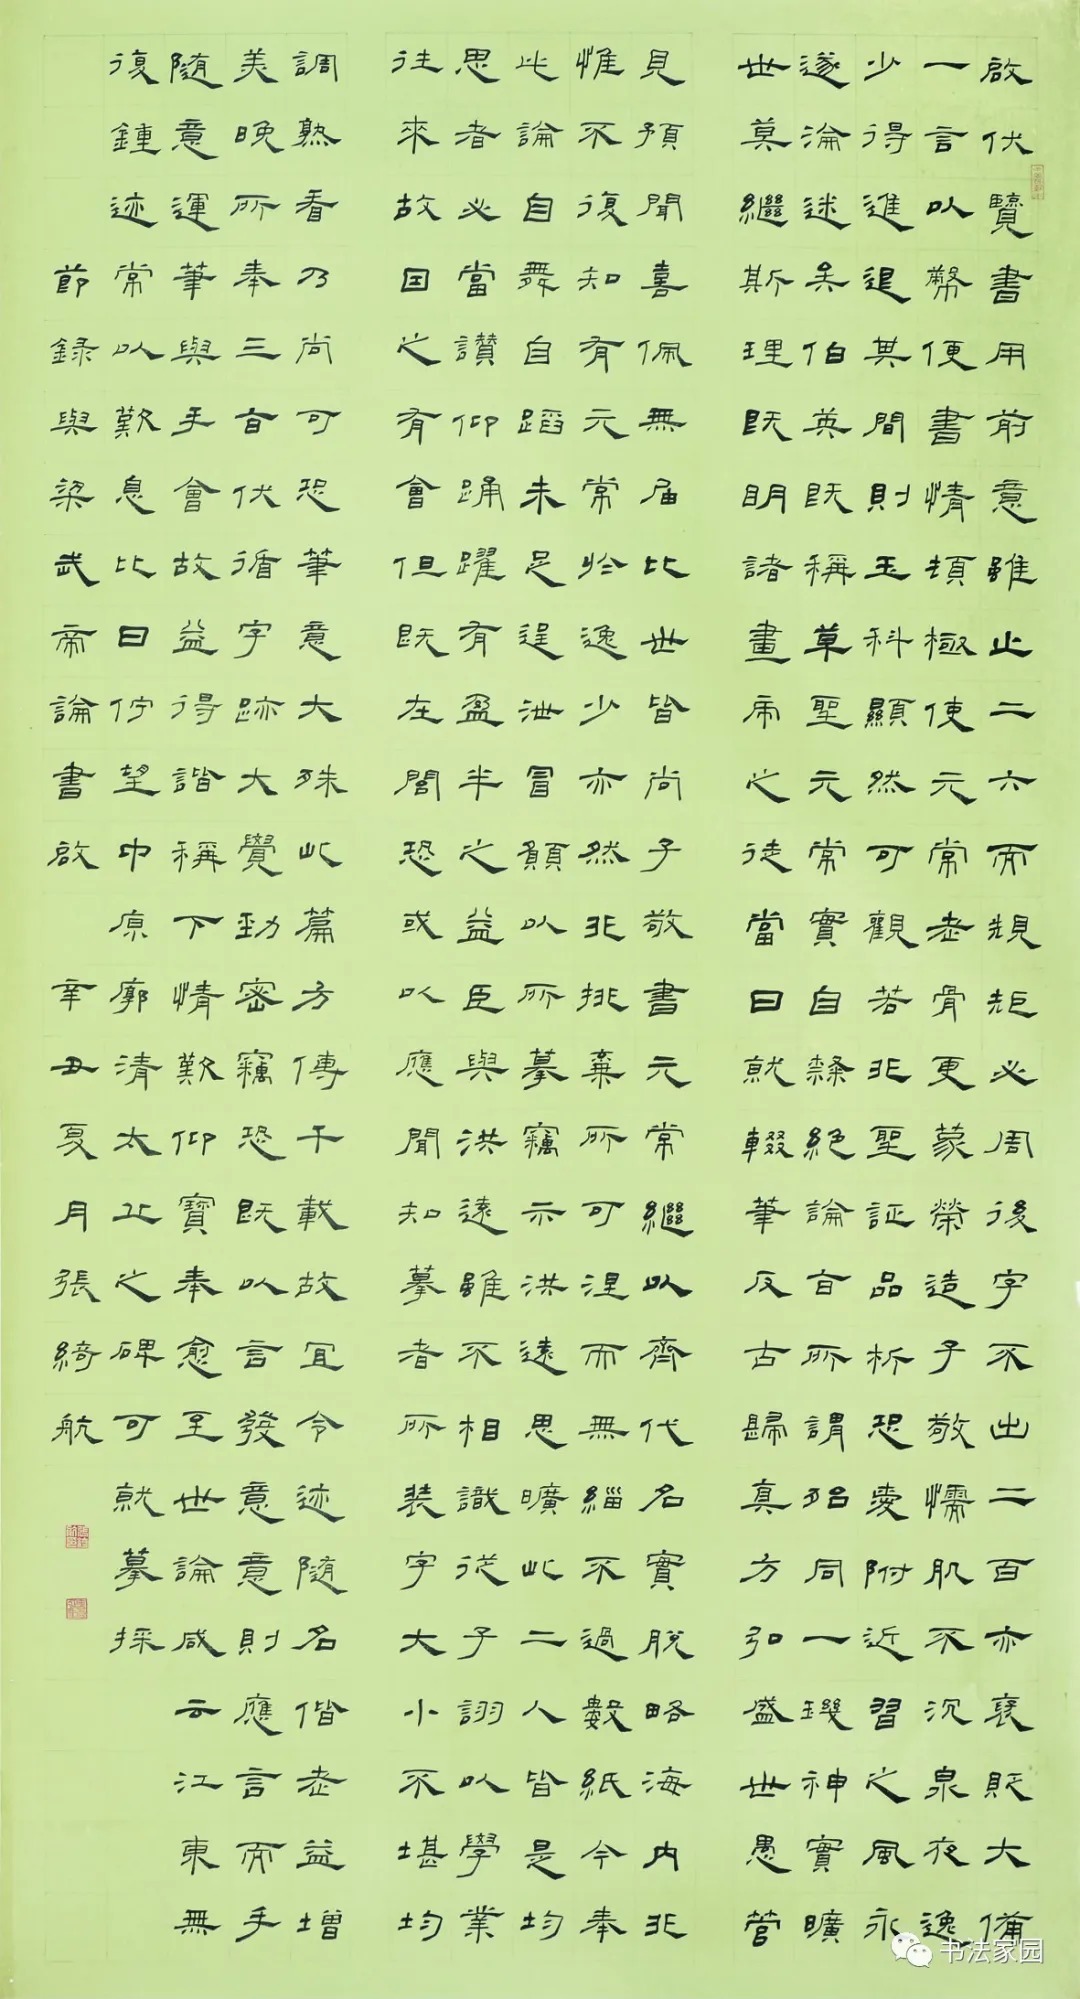 啟伏覽書用前意雖止二六而規矩必周後字不出二百亦褒貶大備
一言以幣便書情頓極使元常老骨更蒙榮造子敬懦肌不沉泉夜逸
少得進退其間則玉科顯然可觀若非聖証品析恐愛附近習之風永
遂淪迷矣伯英既稱草聖元常實自隸絕論旨所謂殆同一璣神實曠
世莫繼斯理既明諸畫虎之徒當日就輟筆反古歸真方弘盛世愚管
見預聞喜佩無屆比世皆尚子敬書元常繼以齊代名實脫略海內非
惟不復知有元常於逸少亦然非排棄所可涅而無緇不過數紙今奉
此論自舞自蹈未足逞泄冒願以所摹竊示洪遠思曠此二人皆是均
思者必當讚仰踊躍有盈半之益臣與洪遠雖不相識從子詡以學業
往來故因之有會但既在閣恐或以應聞知摹者所裝字大小不堪均
調熟看乃尚可恐筆意大殊此篇方傳千載故宜令迹隨名偕老益增
美晚所奉三旨伏循字跡大覺勁密竊恐既以言發意意則應言而手
隨意運筆與手會故益得諧稱下情歎仰寶奉愈至世論咸云江東無
復鍾迹常以歎息比日佇望中原廓清太丘之碑可就摹採
節録與梁武帝論書啟 辛丑夏月張綺航
书法家园